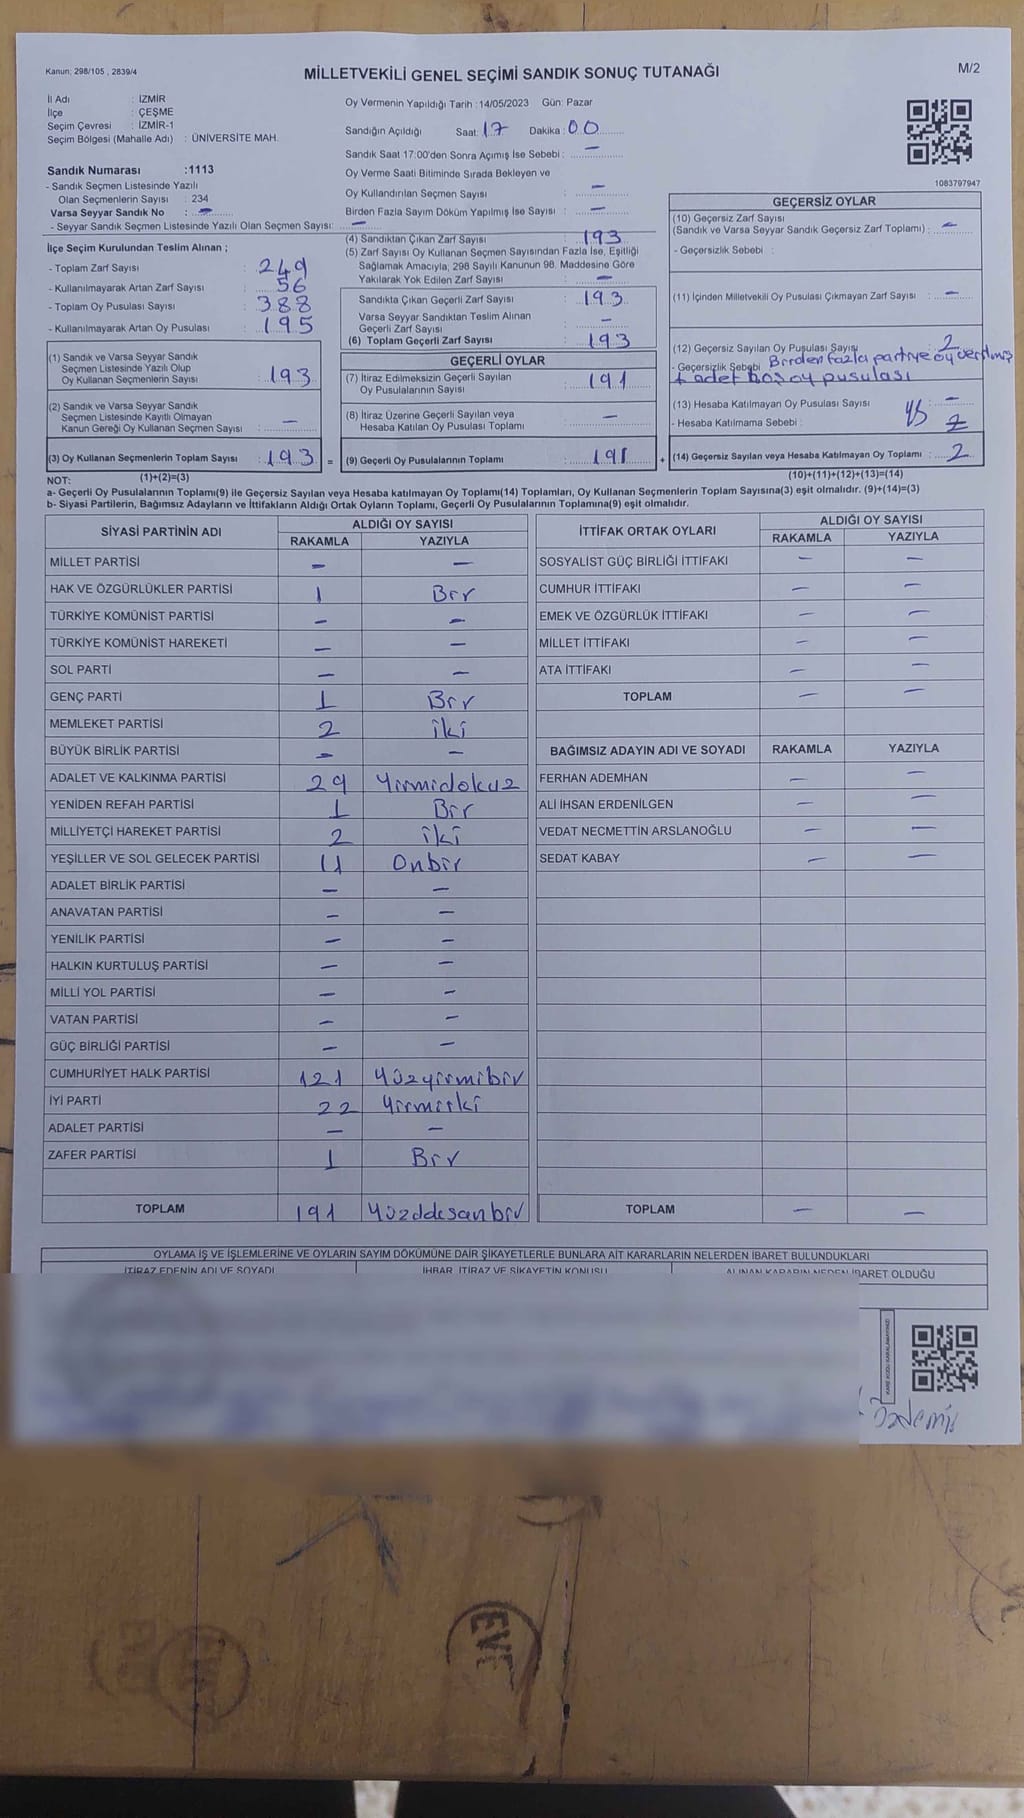 Kanun; 298/105 , 2839/4
MİLLETVEKİLİ GENEL SEÇİMİ SANDIK SONUÇ TUTANAĞI
M/2
İl Adı : İZMİR
İlçe : ÇEŞME
Seçim Çevresi : İZMİR-1
Seçim Bölgesi (Mahalle Adı) : ÜNİVERSİTE MAH.
Sandık Numarası :1113
- Sandık Seçmen Listesinde Yazılı
Olan Seçmenlerin Sayısı : 234
Varsa Seyyar Sandık No : –
- Seyyar Sandık Seçmen Listesinde Yazılı Olan Seçmen Sayısı: –
Oy Vermenin Yapıldığı Tarih :14/05/2023 Gün: Pazar
Sandığın Açıldığı Saat: 17 Dakika: 00
Sandık Saat 17:00'den Sonra Açımış İse Sebebi : –
Oy Verme Saati Bitiminde Sırada Bekleyen ve
Oy Kullandırılan Seçmen Sayısı : –
Birden Fazla Sayım Döküm Yapılmış İse Sayısı : –
1083797947
İlçe Seçim Kurulundan Teslim Alınan ;
- Toplam Zarf Sayısı : 249
- Kullanılmayarak Artan Zarf Sayısı : 56
- Toplam Oy Pusulası Sayısı : 388
- Kullanılmayarak Artan Oy Pusulası : 195
(1) Sandık ve Varsa Seyyar Sandık
Seçmen Listesinde Yazılı Olup
Oy Kullanan Seçmenlerin Sayısı : 193
(2) Sandık ve Varsa Seyyar Sandık
Seçmen Listesinde Kayıtlı Olmayan
Kanun Gereği Oy Kullanan Seçmen Sayısı : –
(3) Oy Kullanan Seçmenlerin Toplam Sayısı : 193 =
(4) Sandıktan Çıkan Zarf Sayısı : 193
(5) Zarf Sayısı Oy Kullanan Seçmen Sayısından Fazla İse, Eşitliği
Sağlamak Amacıyla; 298 Sayılı Kanunun 98. Maddesine Göre
Yakılarak Yok Edilen Zarf Sayısı : –
Sandıkta Çıkan Geçerli Zarf Sayısı : 193
Varsa Seyyar Sandıktan Teslim Alınan
Geçerli Zarf Sayısı : –
(6) Toplam Geçerli Zarf Sayısı : 193
GEÇERLİ OYLAR
(7) İtiraz Edilmeksizin Geçerli Sayılan
Oy Pusulalarının Sayısı : 191
(8) İtiraz Üzerine Geçerli Sayılan veya
Hesaba Katılan Oy Pusulası Toplamı : –
(9) Geçerli Oy Pusulalarının Toplamı : 191 +
GEÇERSİZ OYLAR
(10) Geçersiz Zarf Sayısı
(Sandık ve Varsa Seyyar Sandık Geçersiz Zarf Toplamı) : –
- Geçersizlik Sebebi :
(11) İçinden Milletvekili Oy Pusulası Çıkmayan Zarf Sayısı : –
(12) Geçersiz Sayılan Oy Pusulası Sayısı 2
- Geçersizlik Sebebi Birden fazla partiye oy verilmiş
1 adet boş oy pusulası
(13) Hesaba Katılmayan Oy Pusulası Sayısı : –
- Hesaba Katılmama Sebebi :
(14) Geçersiz Sayılan veya Hesaba Katılmayan Oy Toplamı : 2
NOT: (1)+(2)=(3)
(10)+(11)+(12)+(13)=(14)
a- Geçerli Oy Pusulalarının Toplamı(9) ile Geçersiz Sayılan veya Hesaba katılmayan Oy Toplamı(14) Toplamları, Oy Kullanan Seçmenlerin Toplam Sayısına(3) eşit olmalıdır. (9)+(14)=(3)
b- Siyasi Partilerin, Bağımsız Adayların ve İttifakların Aldığı Ortak Oyların Toplamı, Geçerli Oy Pusulalarının Toplamına(9) eşit olmalıdır.
SİYASİ PARTİNİN ADI ALDIĞI OY SAYISI
RAKAMLA YAZIYLA
MİLLET PARTİSİ – –
HAK VE ÖZGÜRLÜKLER PARTİSİ 1 Bir
TÜRKİYE KOMÜNİST PARTİSİ – –
TÜRKİYE KOMÜNİST HAREKETİ – –
SOL PARTİ – –
GENÇ PARTİ 1 Bir
MEMLEKET PARTİSİ 2 iki
BÜYÜK BİRLİK PARTİSİ – –
ADALET VE KALKINMA PARTİSİ 29 Yirmidokuz
YENİDEN REFAH PARTİSİ 1 Bir
MİLLİYETÇİ HAREKET PARTİSİ 2 iki
YEŞİLLER VE SOL GELECEK PARTİSİ 11 Onbir
ADALET BİRLİK PARTİSİ – –
ANAVATAN PARTİSİ – –
YENİLİK PARTİSİ – –
HALKIN KURTULUŞ PARTİSİ – –
MİLLİ YOL PARTİSİ – –
VATAN PARTİSİ – –
GÜÇ BİRLİĞİ PARTİSİ – –
CUMHURİYET HALK PARTİSİ 121 Yüzyirmibir
İYİ PARTİ 22 Yirmiiki
ADALET PARTİSİ – –
ZAFER PARTİSİ 1 Bir
TOPLAM 191 Yüzddesanbir
İTTİFAK ORTAK OYLARI ALDIĞI OY SAYISI
RAKAMLA YAZIYLA
SOSYALİST GÜÇ BİRLİĞİ İTTİFAKI – –
CUMHUR İTTİFAKI – –
EMEK VE ÖZGÜRLÜK İTTİFAKI – –
MİLLET İTTİFAKI – –
ATA İTTİFAKI – –
TOPLAM – –
BAĞIMSIZ ADAYIN ADI VE SOYADI RAKAMLA YAZIYLA
FERHAN ADEMHAN – –
ALİ İHSAN ERDENİLGEN – –
VEDAT NECMETTİN ARSLANOĞLU – –
SEDAT KABAY – –
TOPLAM – –
OYLAMA İŞ VE İŞLEMLERİNE VE OYLARIN SAYIM DÖKÜMÜNE DAİR ŞİKAYETLERLE BUNLARA AİT KARARLARIN NELERDEN İBARET BULUNDUKLARI
İTİRAZ EDENİN ADI VE SOYADI İHBAR, İTİRAZ VE ŞİKAYETİN KONUSU ALINAN KARARIN NEDEN İBARET OLDUĞU
KARE KODU KARALAMAYINIZ!
Özdemir
EVE